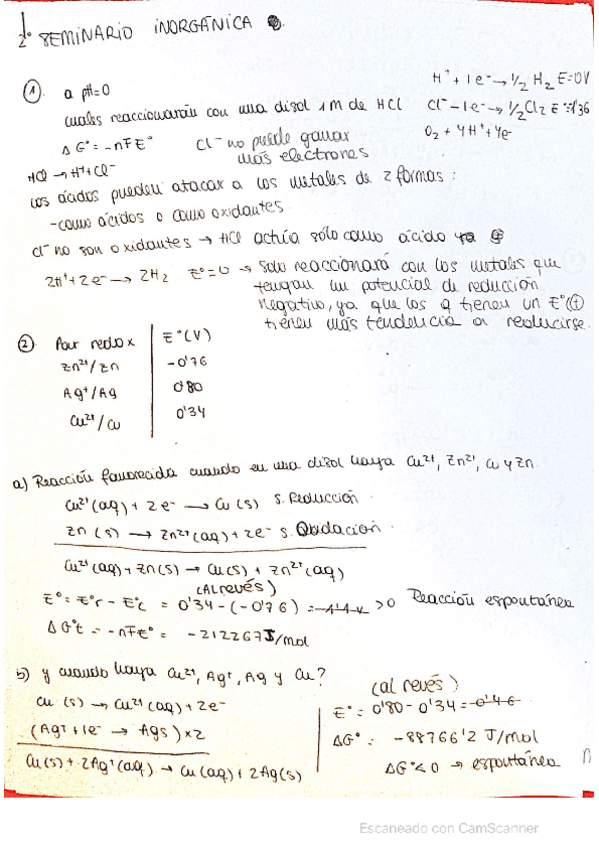 1/2º SEMINARIO INORGÁNICA
① a pH=0
cuales reaccionarán con una disol 1M de HCl
H⁺ + 1e⁻ → 1/2 H₂ E=0V
Cl⁻ - 1e⁻ → 1/2 Cl₂ E=1'36
O₂ + 4H⁺ + 4e⁻
ΔG° = -nFE°
Cl⁻ no puede ganar
más electrones
HCl → H⁺ + Cl⁻
Los ácidos pueden atacar a los metales de 2 formas:
- como ácidos o como oxidantes
Cl⁻ no son oxidantes → HCl actúa sólo como ácido ya
2H⁺ + 2e⁻ → 2H₂ E°=0 → Solo reaccionará con los metales que
tengan un potencial de reducción
negativo, ya que los q tienen un E°(+)
tienen más tendencia a reducirse.
② Par redox E°(V)
Zn²⁺/Zn -0'76
Ag⁺/Ag 0'80
Cu²⁺/Cu 0'34
a) Reacción favorecida cuando en una disol haya Cu²⁺, Zn²⁺, Cu y Zn
Cu²⁺(aq) + 2e⁻ → Cu(s) s. Reducción
Zn(s) → Zn²⁺(aq) + 2e⁻ s. Oxidación
Cu²⁺(aq) + Zn(s) → Cu(s) + Zn²⁺(aq)
(Al revés)
E° = E°r - E°c = 0'34 - (-0'76) = 1'1 V > 0 Reacción espontánea
ΔG°t = -nFE° = -212267 J/mol
b) y cuando haya Cu²⁺, Ag⁺, Ag y Cu?
Cu(s) → Cu²⁺(aq) + 2e⁻
(Ag⁺ + 1e⁻ → Ag s) x 2
Cu(s) + 2Ag⁺(aq) → Cu(aq) + 2Ag(s)
(al revés)
E° = 0'80 - 0'34 = 0'46
ΔG° = -88766'2 J/mol
ΔG° < 0 → espontánea
Escaneado con CamScanner